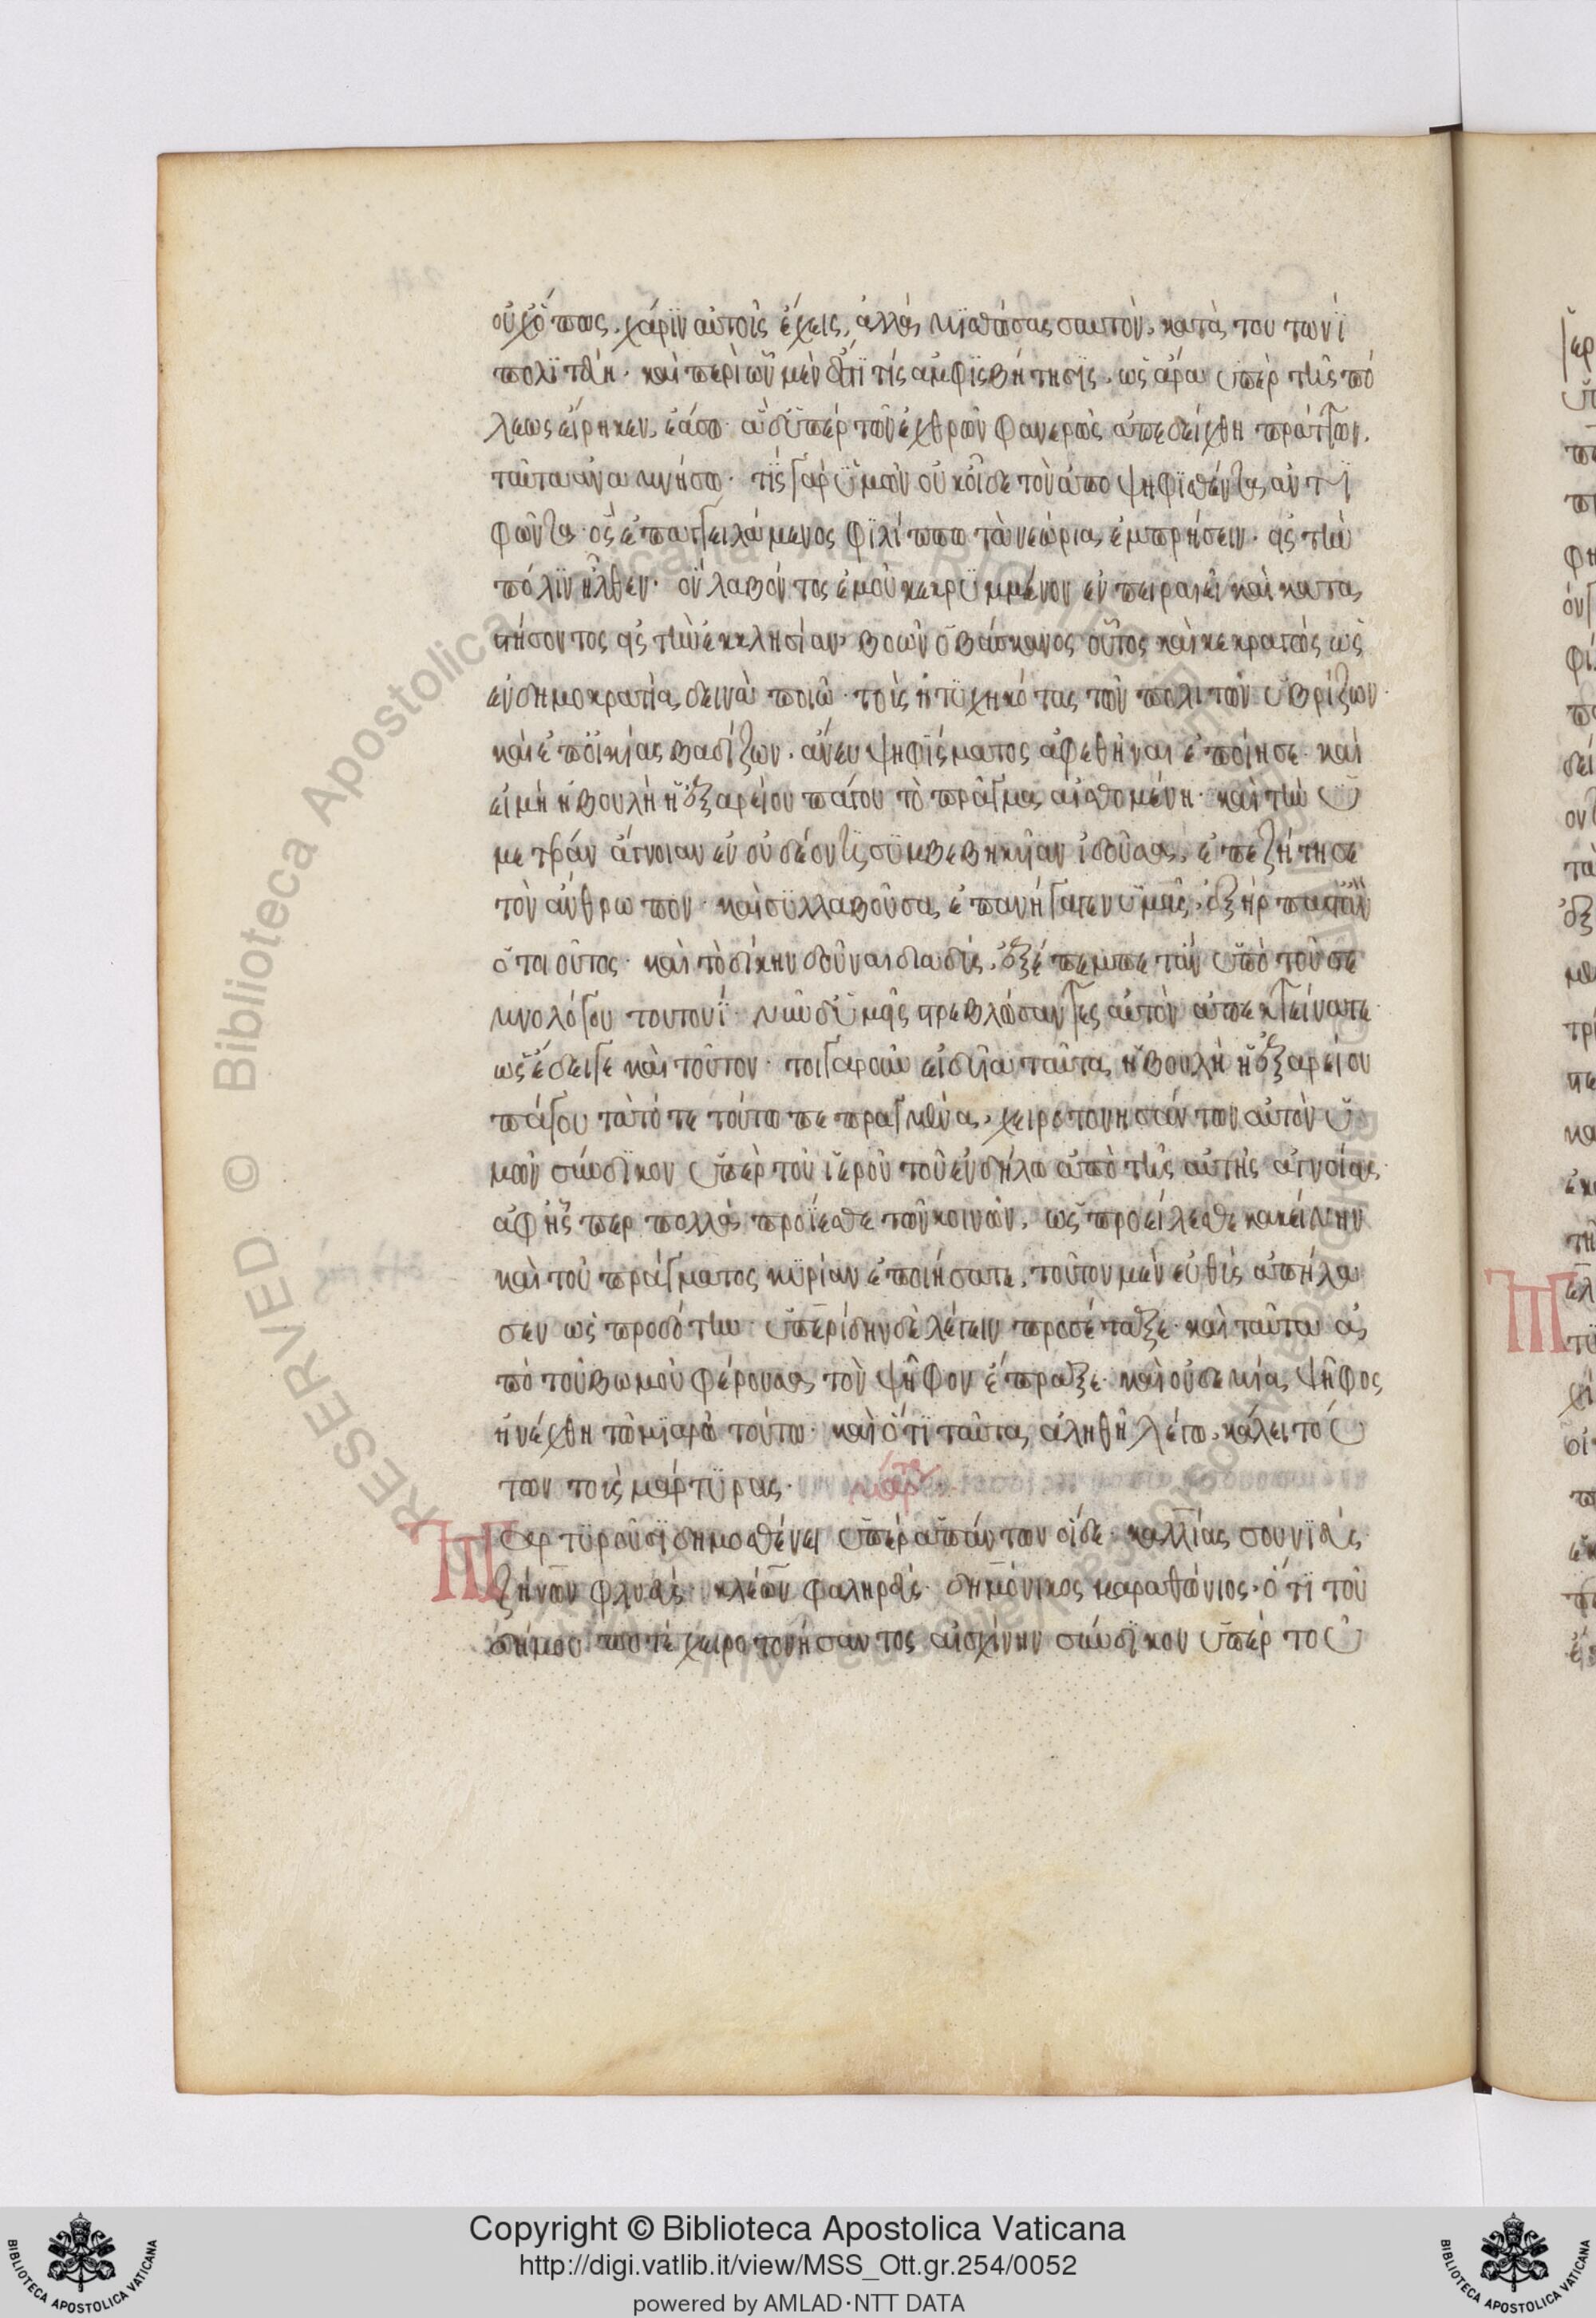 οὐχ ὅπως χάριν αὐτοῖς ἔχεις, ἀλλὰ μισθώσας σαυτὸν, κατὰ τουτωνὶ
πολιτεύη· καὶ περὶ ὧν μὲν ἐστί τις ἀμφισβήτησις, ὡς ἄρα ὑπὲρ τῆς πό
λεως εἴρηκεν, ἐάσω· ἃ δ' ὑπὲρ τῶν ἐχθρῶν φανερῶς ἀπεδείχθη πράττων,
ταῦτα ἀναμνήσω· τίς γὰρ ὑμῶν οὐκ οἶδε τὸν ἀποψηφισθέντα ἀντι
φῶντα· ὃς ἐπαγγειλάμενος φιλίππω τὰ νεώρια ἐμπρήσειν· εἰς τὴν
πόλιν ἦλθεν· ὃν λαβόντος ἐμοῦ κεκρυμμένον ἐν πειραιεῖ καὶ κατα
στήσοντος εἰς τὴν ἐκκλησίαν, βοῶν ὁ βάσκανος οὗτος καὶ κεκραγὼς ὡς
ἐν δημοκρατία δεινὰ ποιῶ· τοὺς ἠτυχηκότας τῶν πολιτῶν ὑβρίζων·
καὶ ἐπ' οἰκίας βαδίζων, ἄνευ ψηφίσματος ἀφεθῆναι ἐποίησε· καὶ
εἰ μὴ ἡ βουλὴ ἡ ἐξ ἀρείου πάγου τὸ πρᾶγμα αἰσθομένη· καὶ τὴν ὑ
μετέραν ἄγνοιαν ἐν οὐ δέοντι συμβεβηκυῖαν ἰδοῦσα, ἐπεζήτησε
τὸν ἄνθρωπον· καὶ συλλαβοῦσα ἐπανήγαγεν ὑμᾶς, ἐξήρπαστ' ἂν
ὁ τοιοῦτος· καὶ τὸ δίκην δοῦναι διαδὺς, ἐξεπέμπετ' ἂν ὑπὸ τοῦ σε
μνολόγου τουτουί· νῦν δ' ὑμεῖς στρεβλώσαντες αὐτὸν ἀπεκτείνατε·
ὡς ἔδει γε καὶ τοῦτον· τοιγαροῦν εἰδυῖα ταῦτα ἡ βουλὴ ἡ ἐξ ἀρείου
πάγου τὰ τότε τούτω πεπραγμένα, χειροτονησάντων αὐτὸν ὑ
μῶν σύνδικον ὑπὲρ τοῦ ἱεροῦ τοῦ ἐν δήλω ἀπὸ τῆς αὐτῆς ἀγνοίας
ἀφ' ἧσπερ πολλὰ προΐεσθε τῶν κοινῶν, ὡς προείλεσθε κἀκείνην
καὶ τοῦ πράγματος κυρίαν ἐποιήσατε, τοῦτον μὲν εὐθὺς ἀπήλα
σεν ὡς προδότην· ὑπερίδην δὲ λέγειν προσέταξε· καὶ ταῦτα ἀ
πὸ τοῦ βωμοῦ φέρουσα τὸν ψῆφον ἔπραξε· καὶ οὐδεμία ψῆφος
ἠνέχθη τῶ μιαρῶ τούτω· καὶ ὅτι ταῦτα ἀληθῆ λέγω, κάλει τού
των τοὺς μάρτυρας· μάρτ
αρτυροῦσι δημοσθένει ὑπὲρ ἁπάντων οἵδε· καλλίας σουνιεύς·
ζήνων φλυεύς· κλέων φαληρεύς· δημόνικος μαραθώνιος· ὅτι τοῦ
δήμου ποτὲ χειροτονήσαντος αἰσχίνην σύνδικον ὑπὲρ τοῦ
RESERVED © Biblioteca Apostolica Vaticana
Copyright © Biblioteca Apostolica Vaticana
http://digi.vatlib.it/view/MSS_Ott.gr.254/0052
powered by AMLAD·NTT DATA
BIBLIOTECA APOSTOLICA VATICANA
BIBLIOTECA APOSTOLICA VATICANA